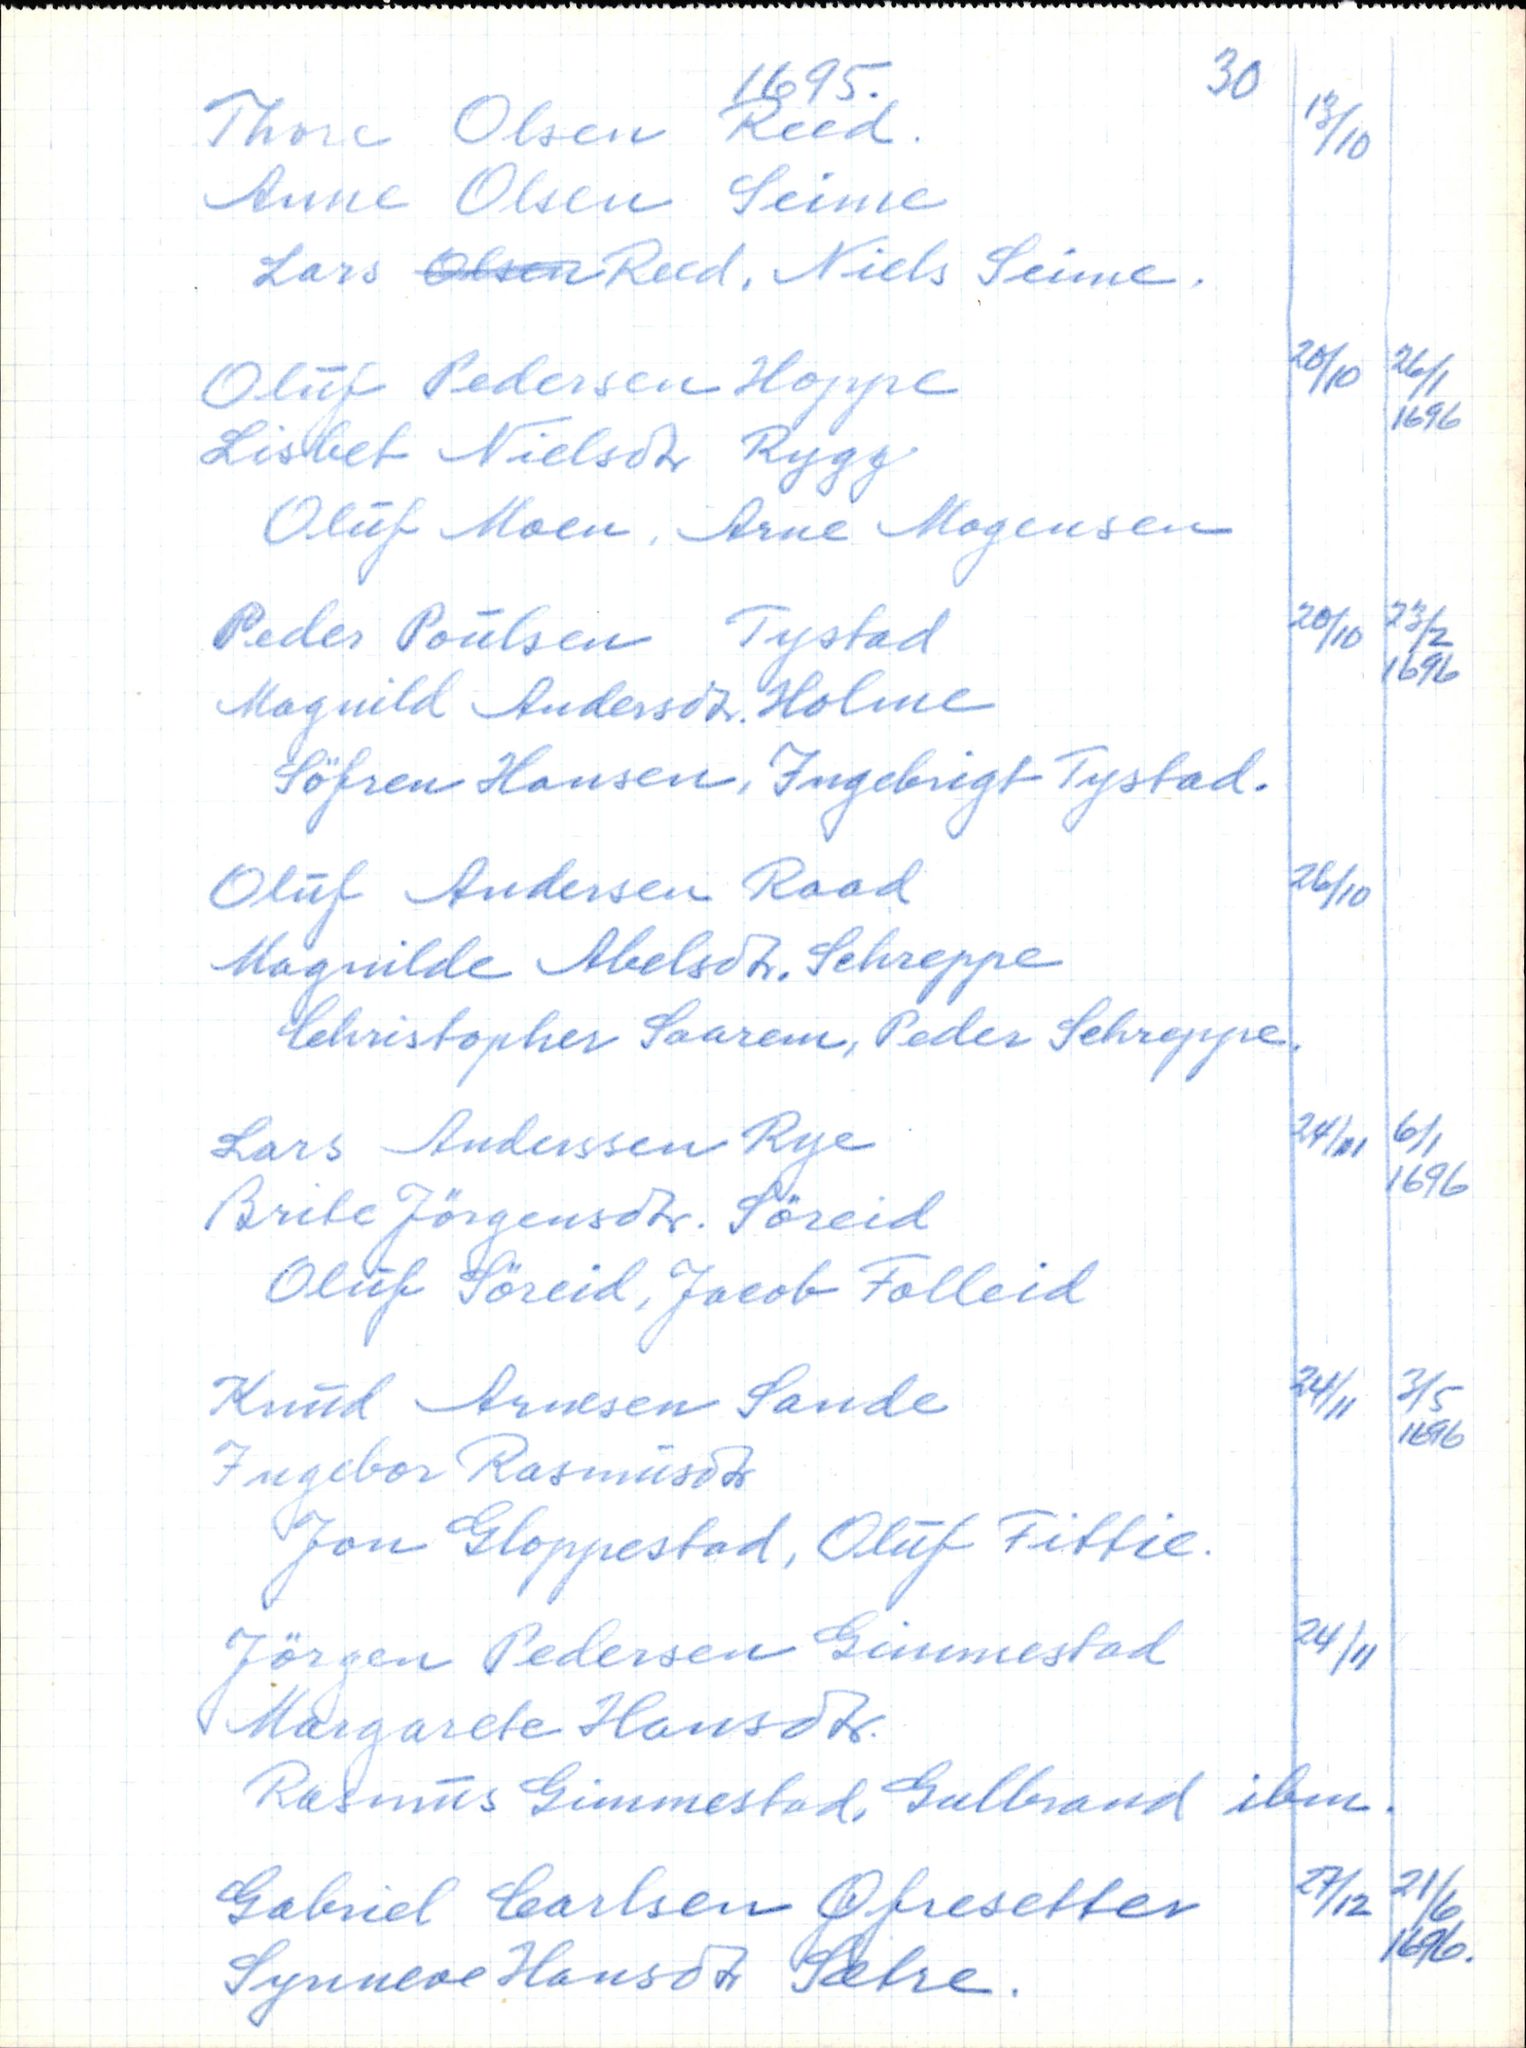 1695. 30
Thore Olsen Reed. 13/10
Anne Olsen Seime
Lars Olsen Reed, Niels Seime.
Oluf Pedersen Hoppe 20/10 26/1
1696
Lisbet Nielsdtr Rygg
Oluf Moen, Arne Mogensen
Peder Poulsen Tystad 20/10 23/2
1696
Magnild Andersdtr. Holme
Söfren Hansen, Ingebrigt Tystad.
Oluf Andersen Raad 26/10
Magnilde Abelsdtr. Schreppe
Christopher Saarem, Peder Schreppe.
Lars Anderssen Rye 24/11 6/1
1696
Brite Jörgensdtr. Söreid
Oluf Söreid, Jacob Folleid
Knud Arnesen Sande 24/11 3/5
1696
Ingebor Rasmusdtr
Jon Gloppestad, Oluf Fittie.
Jörgen Pedersen Gimmestad 24/11
Margarete Hansdtr.
Rasmus Gimmestad, Gulbrand ibm.
Gabriel Carlsen Ofresetter 27/12 21/6
1696.
Synneve Hansdtr Sætre.